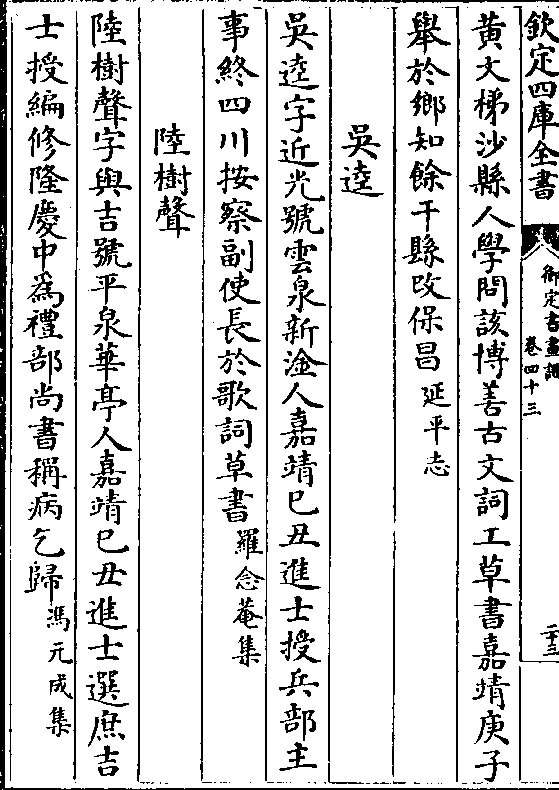 欽定四庫全書
御定書畫譜
卷四十三
二十三
黄文梯沙縣人學問該博善古文詞工草書嘉靖庚子
舉於鄉知餘干縣改保昌延平志
吳逵
吳逵字近光號雲泉新淦人嘉靖己丑進士授兵部主
事終四川按察副使長於歌詞草書羅念菴集
陸樹聲
陸樹聲字與吉號平泉華亭人嘉靖己丑進士選庶吉
士授編修隆慶中為禮部尚書稱病乞歸馮元成集